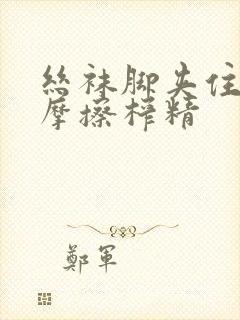 絲袜脚夹住
摩擦榨精
鄭軍